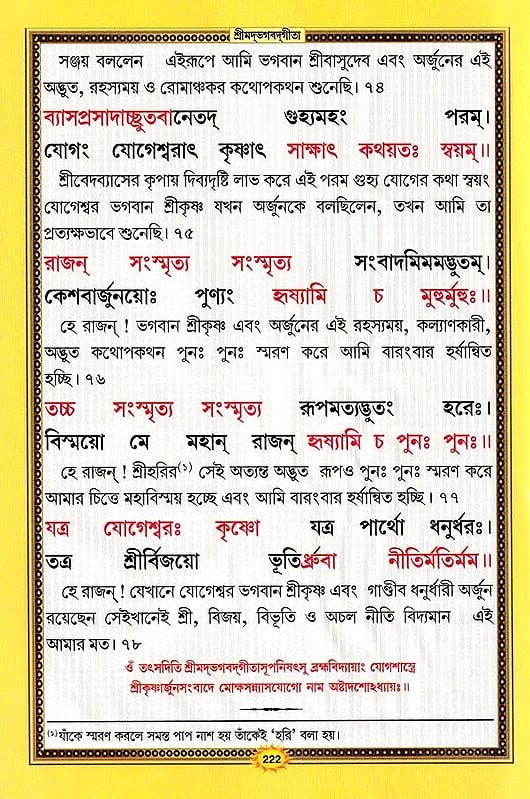 শ্রীমদ্ভগবদ্গীতা
সঞ্জয় বললেন এইরূপে আমি ভগবান শ্রীবাসুদেব এবং অর্জুনের এই
অদ্ভুত, রহস্যময় ও রোমাঞ্চকর কথোপকথন শুনেছি। ৭৪
ব্যাসপ্রসাদাচ্ছ্রুতবানেতদ্ গুহ্যমহং পরম্।
যোগং যোগেশ্বরাৎ কৃষ্ণাৎ সাক্ষাৎ কথয়তঃ স্বয়ম্॥
শ্রীবেদব্যাসের কৃপায় দিব্যদৃষ্টি লাভ করে এই পরম গুহ্য যোগের কথা স্বয়ং
যোগেশ্বর ভগবান শ্রীকৃষ্ণ যখন অর্জুনকে বলছিলেন, তখন আমি তা
প্রত্যক্ষভাবে শুনেছি। ৭৫
রাজন্ সংস্মৃত্য সংস্মৃত্য সংবাদমিমমদ্ভুতম্।
কেশবার্জুনয়োঃ পুণ্যং হৃষ্যামি চ মুহুর্মুহুঃ॥
হে রাজন্ ! ভগবান শ্রীকৃষ্ণ এবং অর্জুনের এই রহস্যময়, কল্যাণকারী,
অদ্ভুত কথোপকথন পুনঃ পুনঃ স্মরণ করে আমি বারংবার হর্ষান্বিত
হচ্ছি। ৭৬
তচ্চ সংস্মৃত্য সংস্মৃত্য রূপমত্যদ্ভুতং হরেঃ।
বিস্ময়ো মে মহান্ রাজন্ হৃষ্যামি চ পুনঃ পুনঃ॥
হে রাজন্ ! শ্রীহরির(১) সেই অত্যন্ত অদ্ভুত রূপও পুনঃ পুনঃ স্মরণ করে
আমার চিত্তে মহাবিস্ময় হচ্ছে এবং আমি বারংবার হর্ষান্বিত হচ্ছি। ৭৭
যত্র যোগেশ্বরঃ কৃষ্ণো যত্র পার্থো ধনুর্ধরঃ।
তত্র শ্রীর্বিজয়ো ভূতির্ধ্রুবা নীতির্মতির্মম॥
হে রাজন্ ! যেখানে যোগেশ্বর ভগবান শ্রীকৃষ্ণ এবং গাণ্ডীব ধনুর্ধারী অর্জুন
রয়েছেন সেইখানেই শ্রী, বিজয়, বিভূতি ও অচল নীতি বিদ্যমান এই
আমার মত। ৭৮
ওঁ তৎসদিতি শ্রীমদ্ভগবদ্গীতাসূপনিষৎসু ব্রহ্মবিদ্যায়াং যোগশাস্ত্রে
শ্রীকৃষ্ণার্জুনসংবাদে মোক্ষসন্ন্যাসযোগো নাম অষ্টাদশোঽধ্যায়ঃ॥
(১)যাঁকে স্মরণ করলে সমস্ত পাপ নাশ হয় তাঁকেই ‘হরি’ বলা হয়।
222